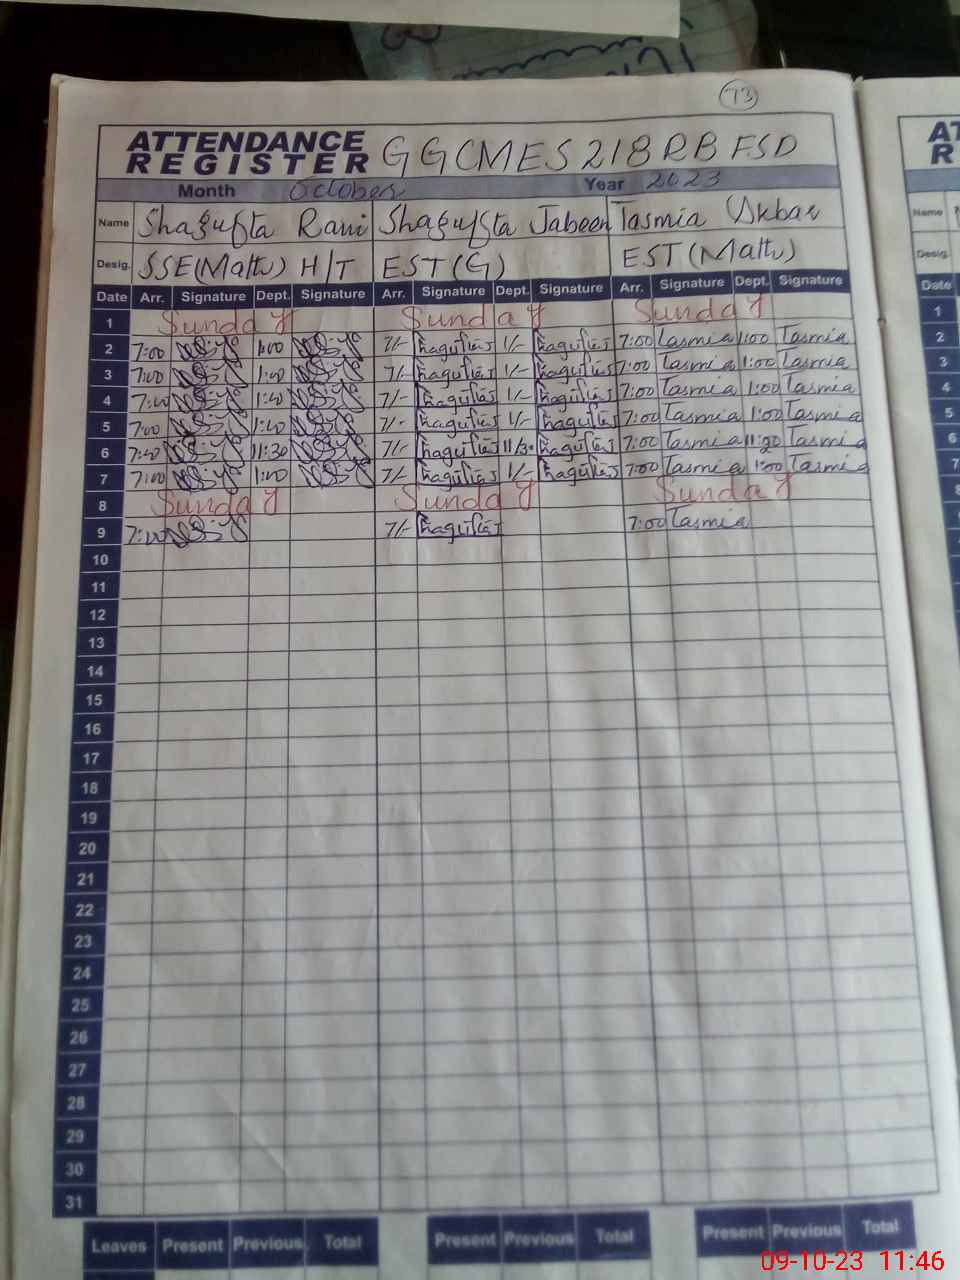 73
ATTENDANCE REGISTER GGCMES 218 RB FSD
Month October Year 2023
Name Shagufta Rani Shagufta Jabeen Tasmia Akbar
Desig. SSE(Math) H/T EST(G) EST(Math)
Date Arr. Signature Dept. Signature Arr. Signature Dept. Signature Arr. Signature Dept. Signature
1 Sunday Sunday Sunday
2 7:00 1:00 7/- 1/- 7:00 Tasmia 1:00 Tasmia
3 7:00 1:00 7/- 1/- 7:00 Tasmia 1:00 Tasmia
4 7:00 1:00 7/- 1/- 7:00 Tasmia 1:00 Tasmia
5 7:00 1:00 7/- 1/- 7:00 Tasmia 1:00 Tasmia
6 7:00 11:30 7/- 11/30 7:00 Tasmia Tasmia
7 7:00 1:00 7/- 1/- 7:00 Tasmia 1:00 Tasmia
8 Sunday Sunday Sunday
9 7:00 7/- 7:00 Tasmia
10
11
12
13
14
15
16
17
18
19
20
21
22
23
24
25
26
27
28
29
30
31
Leaves Present Previous Total Present Previous Total Present Previous Total
AT
R
Name
Desig.
Date
1
2
3
4
5
6
7
09-10-23 11:46